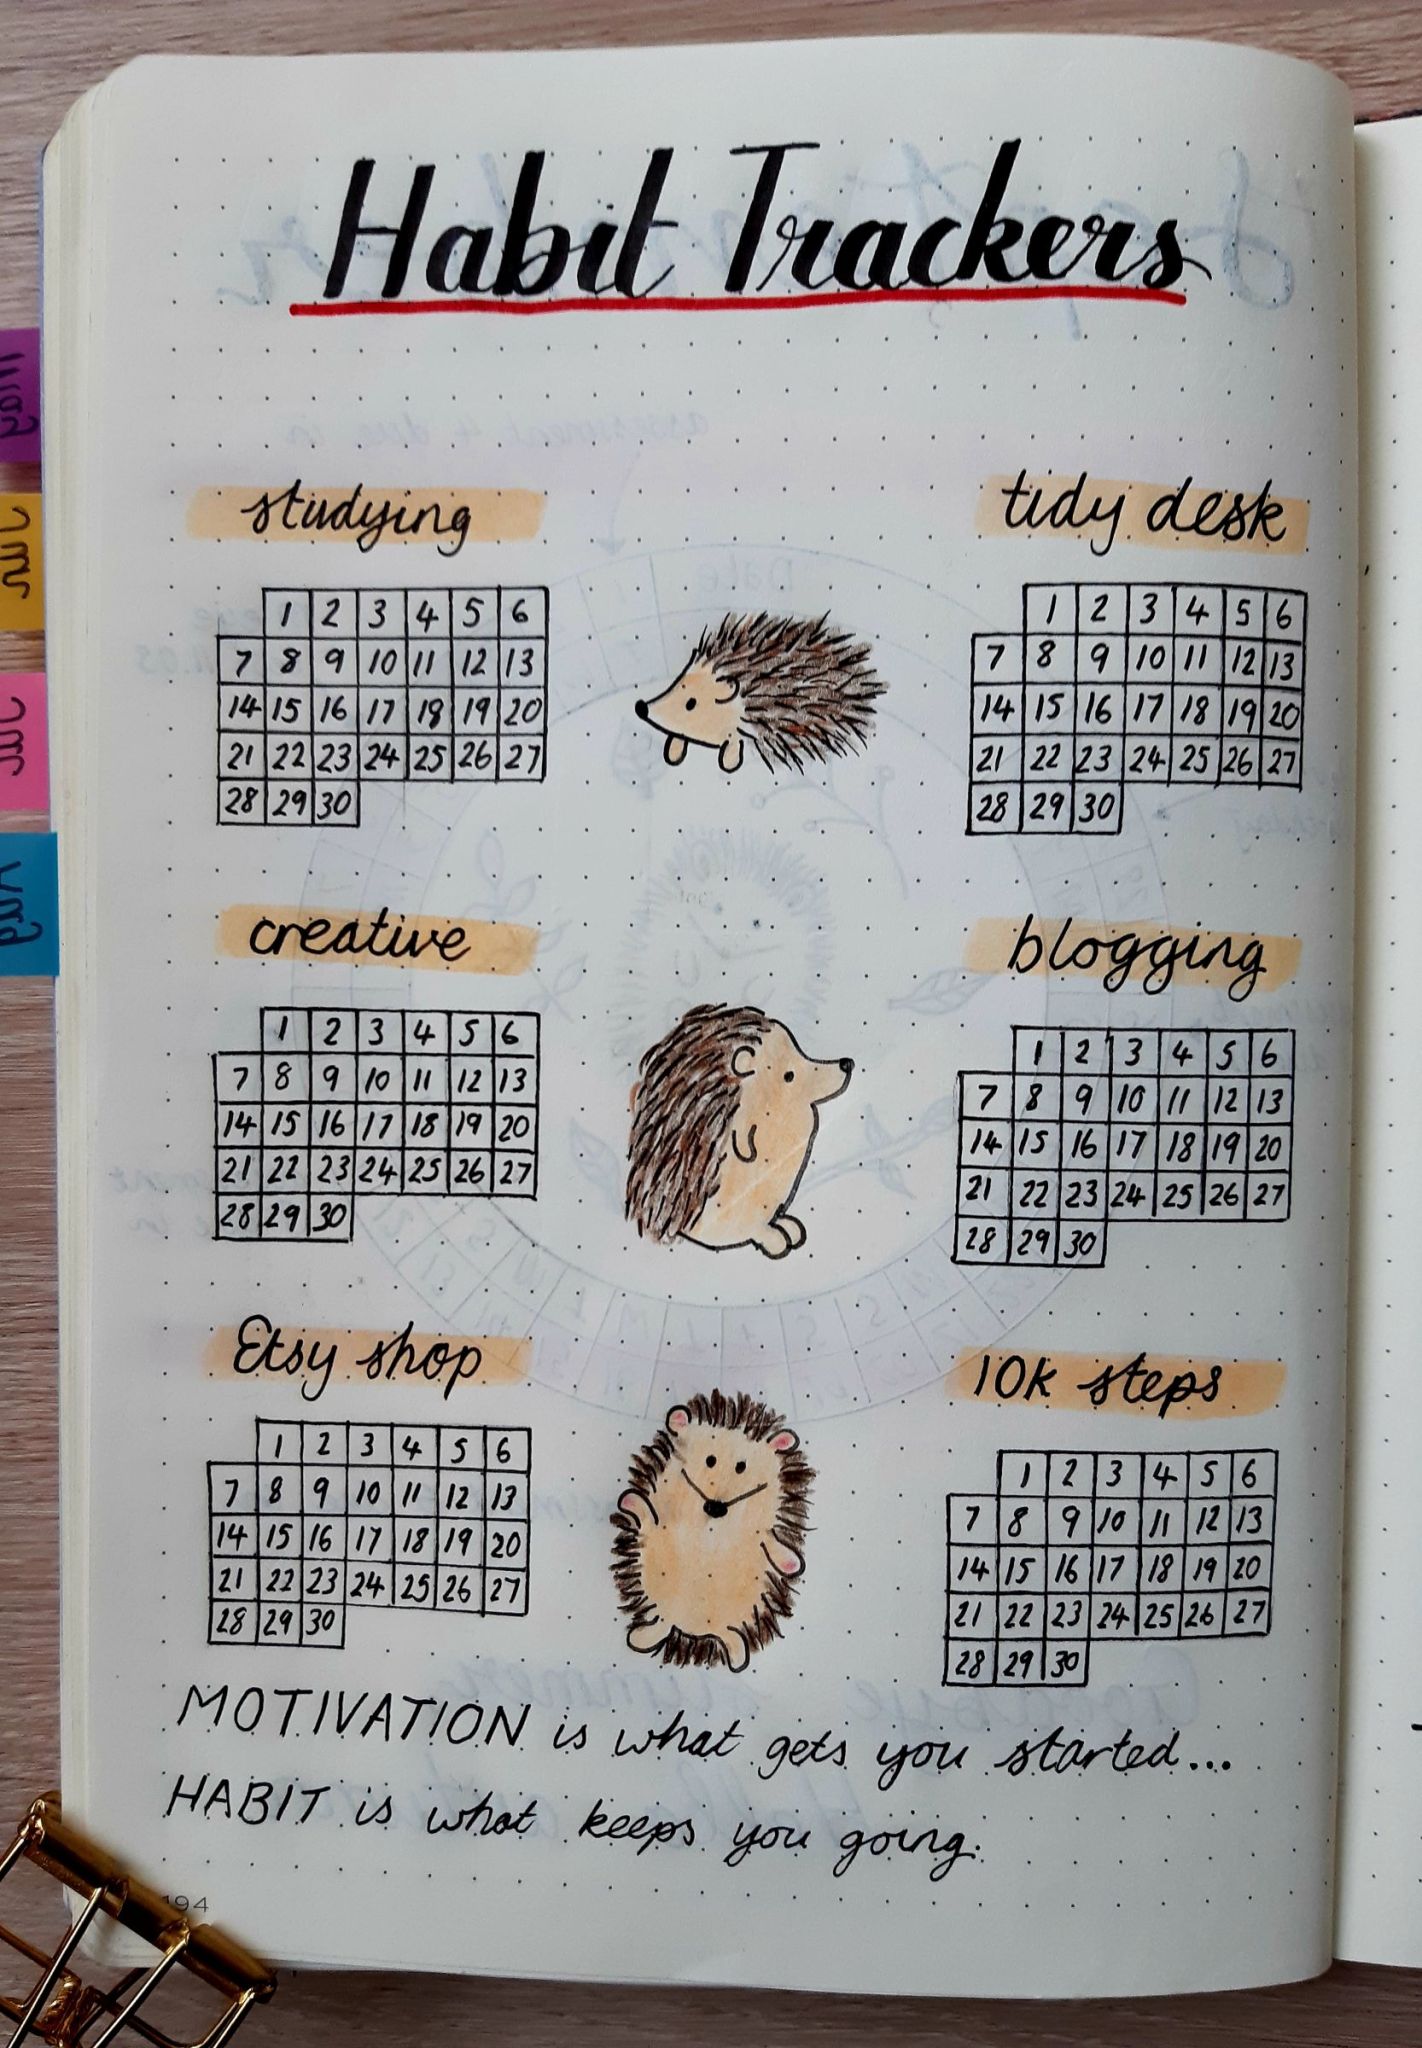 Habit Trackers
studying
1 2 3 4 5 6
7 8 9 10 11 12 13
14 15 16 17 18 19 20
21 22 23 24 25 26 27
28 29 30
tidy desk
1 2 3 4 5 6
7 8 9 10 11 12 13
14 15 16 17 18 19 20
21 22 23 24 25 26 27
28 29 30
creative
1 2 3 4 5 6
7 8 9 10 11 12 13
14 15 16 17 18 19 20
21 22 23 24 25 26 27
28 29 30
blogging
1 2 3 4 5 6
7 8 9 10 11 12 13
14 15 16 17 18 19 20
21 22 23 24 25 26 27
28 29 30
Etsy shop
1 2 3 4 5 6
7 8 9 10 11 12 13
14 15 16 17 18 19 20
21 22 23 24 25 26 27
28 29 30
10k steps
1 2 3 4 5 6
7 8 9 10 11 12 13
14 15 16 17 18 19 20
21 22 23 24 25 26 27
28 29 30
MOTIVATION is what gets you started...
HABIT is what keeps you going.
194
May
Jun
Jul
Aug